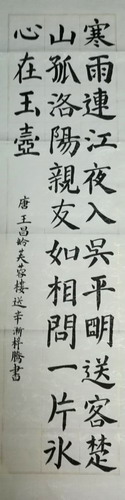 寒雨連江夜入吳平明送客楚
山孤洛陽親友如相問一片冰
心在玉壺
唐王昌岭芙蓉樓送辛漸梓騰書